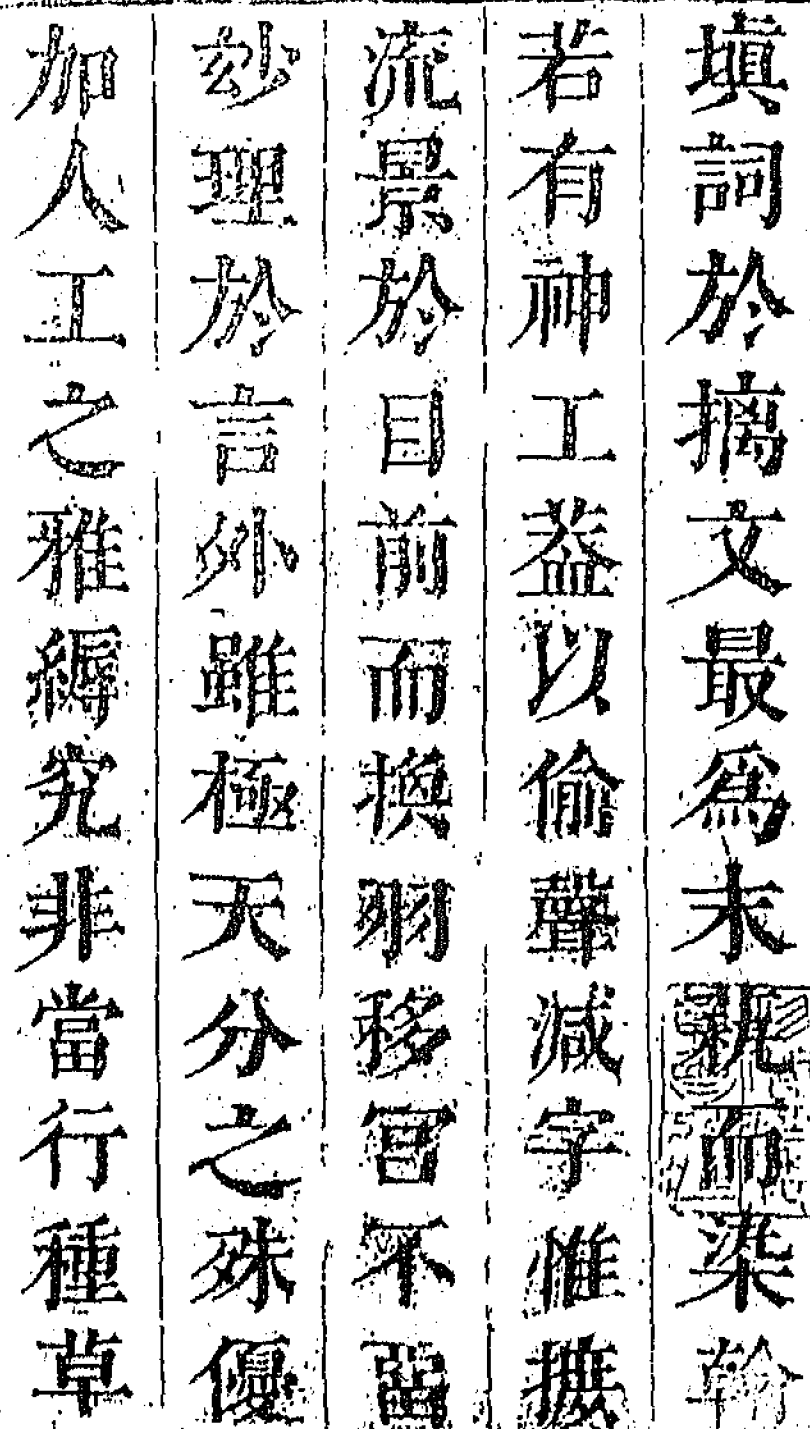 填詞於摛文最爲末埶而染翰
若有神工葢以偷聲减字惟摭
流景於目前而換羽移宫不畱
玅理於言外雖極天分之殊優
加人工之雅縟究非當行種草